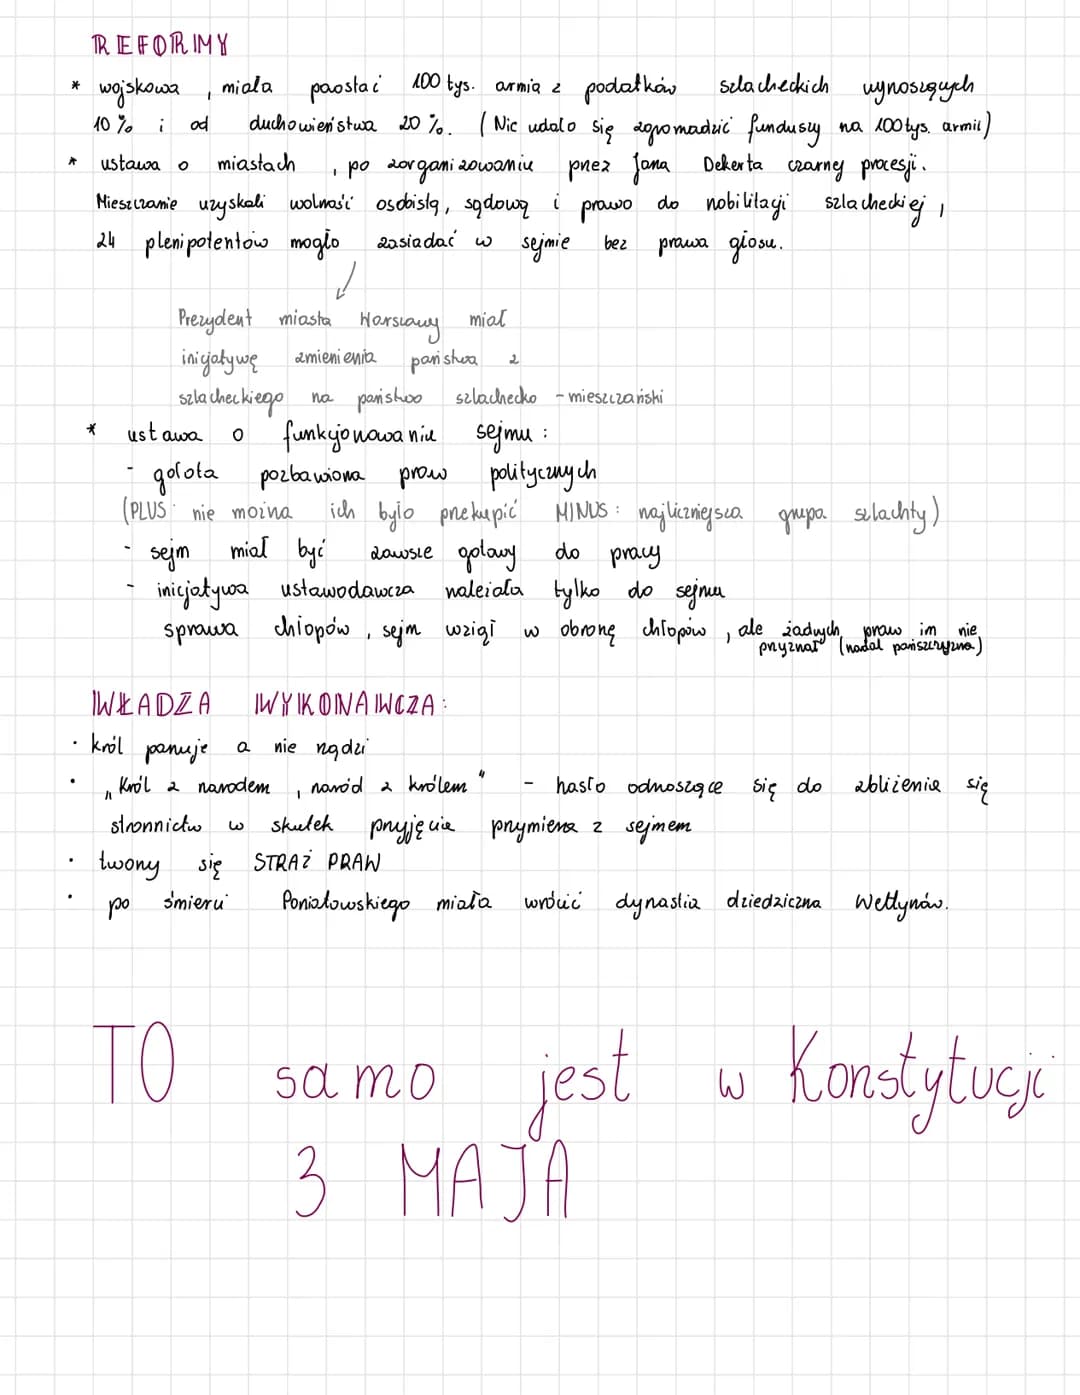 REFORMY
* wojskowa , miała powstać 100 tys. armia z podatków szlacheckich wynoszących
10 % i od duchowieństwa 20 %. ( Nie udało się zgromadzić funduszy na 100 tys. armii)
* ustawa o miastach , po zorganizowaniu przez Jana Dekerta czarnej procesji.
Mieszczanie uzyskali wolność osobistą, sądową i prawo do nobilitacji szlacheckiej ,
24 plenipotentów mogło zasiadać w sejmie bez prawa głosu.
Prezydent miasta Warszawy miał
inicjatywę zmienienia państwa z
szlacheckiego na państwo szlachecko - mieszczański
* ustawa o funkcjonowaniu sejmu :
- gołota pozbawiona praw politycznych
(PLUS : nie można ich było przekupić MINUS : najliczniejsza grupa szlachty)
- sejm miał być zawsze gotowy do pracy
- inicjatywa ustawodawcza należała tylko do sejmu
sprawa chłopów , sejm wziął w obronę chłopów , ale żadnych praw im nie
przyznał (nadal pańszczyzna)
WŁADZA WYKONAWCZA :
· król panuje a nie rządzi
· „ Król z narodem , naród z królem " - hasło odnoszące się do zbliżenia się
stronnictw w skutek przyjęcia przymierza z sejmem
· tworzy się STRAŻ PRAW
· po śmierci Poniatowskiego miała wrócić dynastia dziedziczna Wettynów.
TO samo jest w Konstytucji
3 MAJA